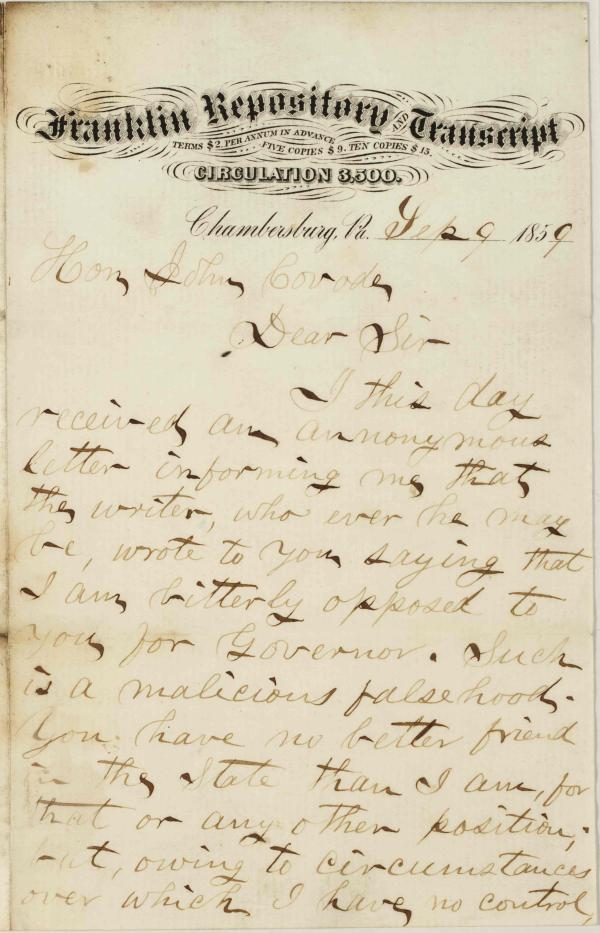 Franklin Repository AND Transcript
TERMS $2. PER ANNUM IN ADVANCE
FIVE COPIES $9. TEN COPIES $15.
CIRCULATION 3,500.
Chambersburg, Pa. Sep 9 1859
Hon John Covode
Dear Sir
I this day
received an annonymous
letter informing me that
the writer, who ever he may
be, wrote to you saying that
I am bitterly opposed to
you for Governor. Such
is a malicious falsehood.
You have no better friend
in the State than I am, for
that or any other position;
but, owing to circumstances
over which I have no control,